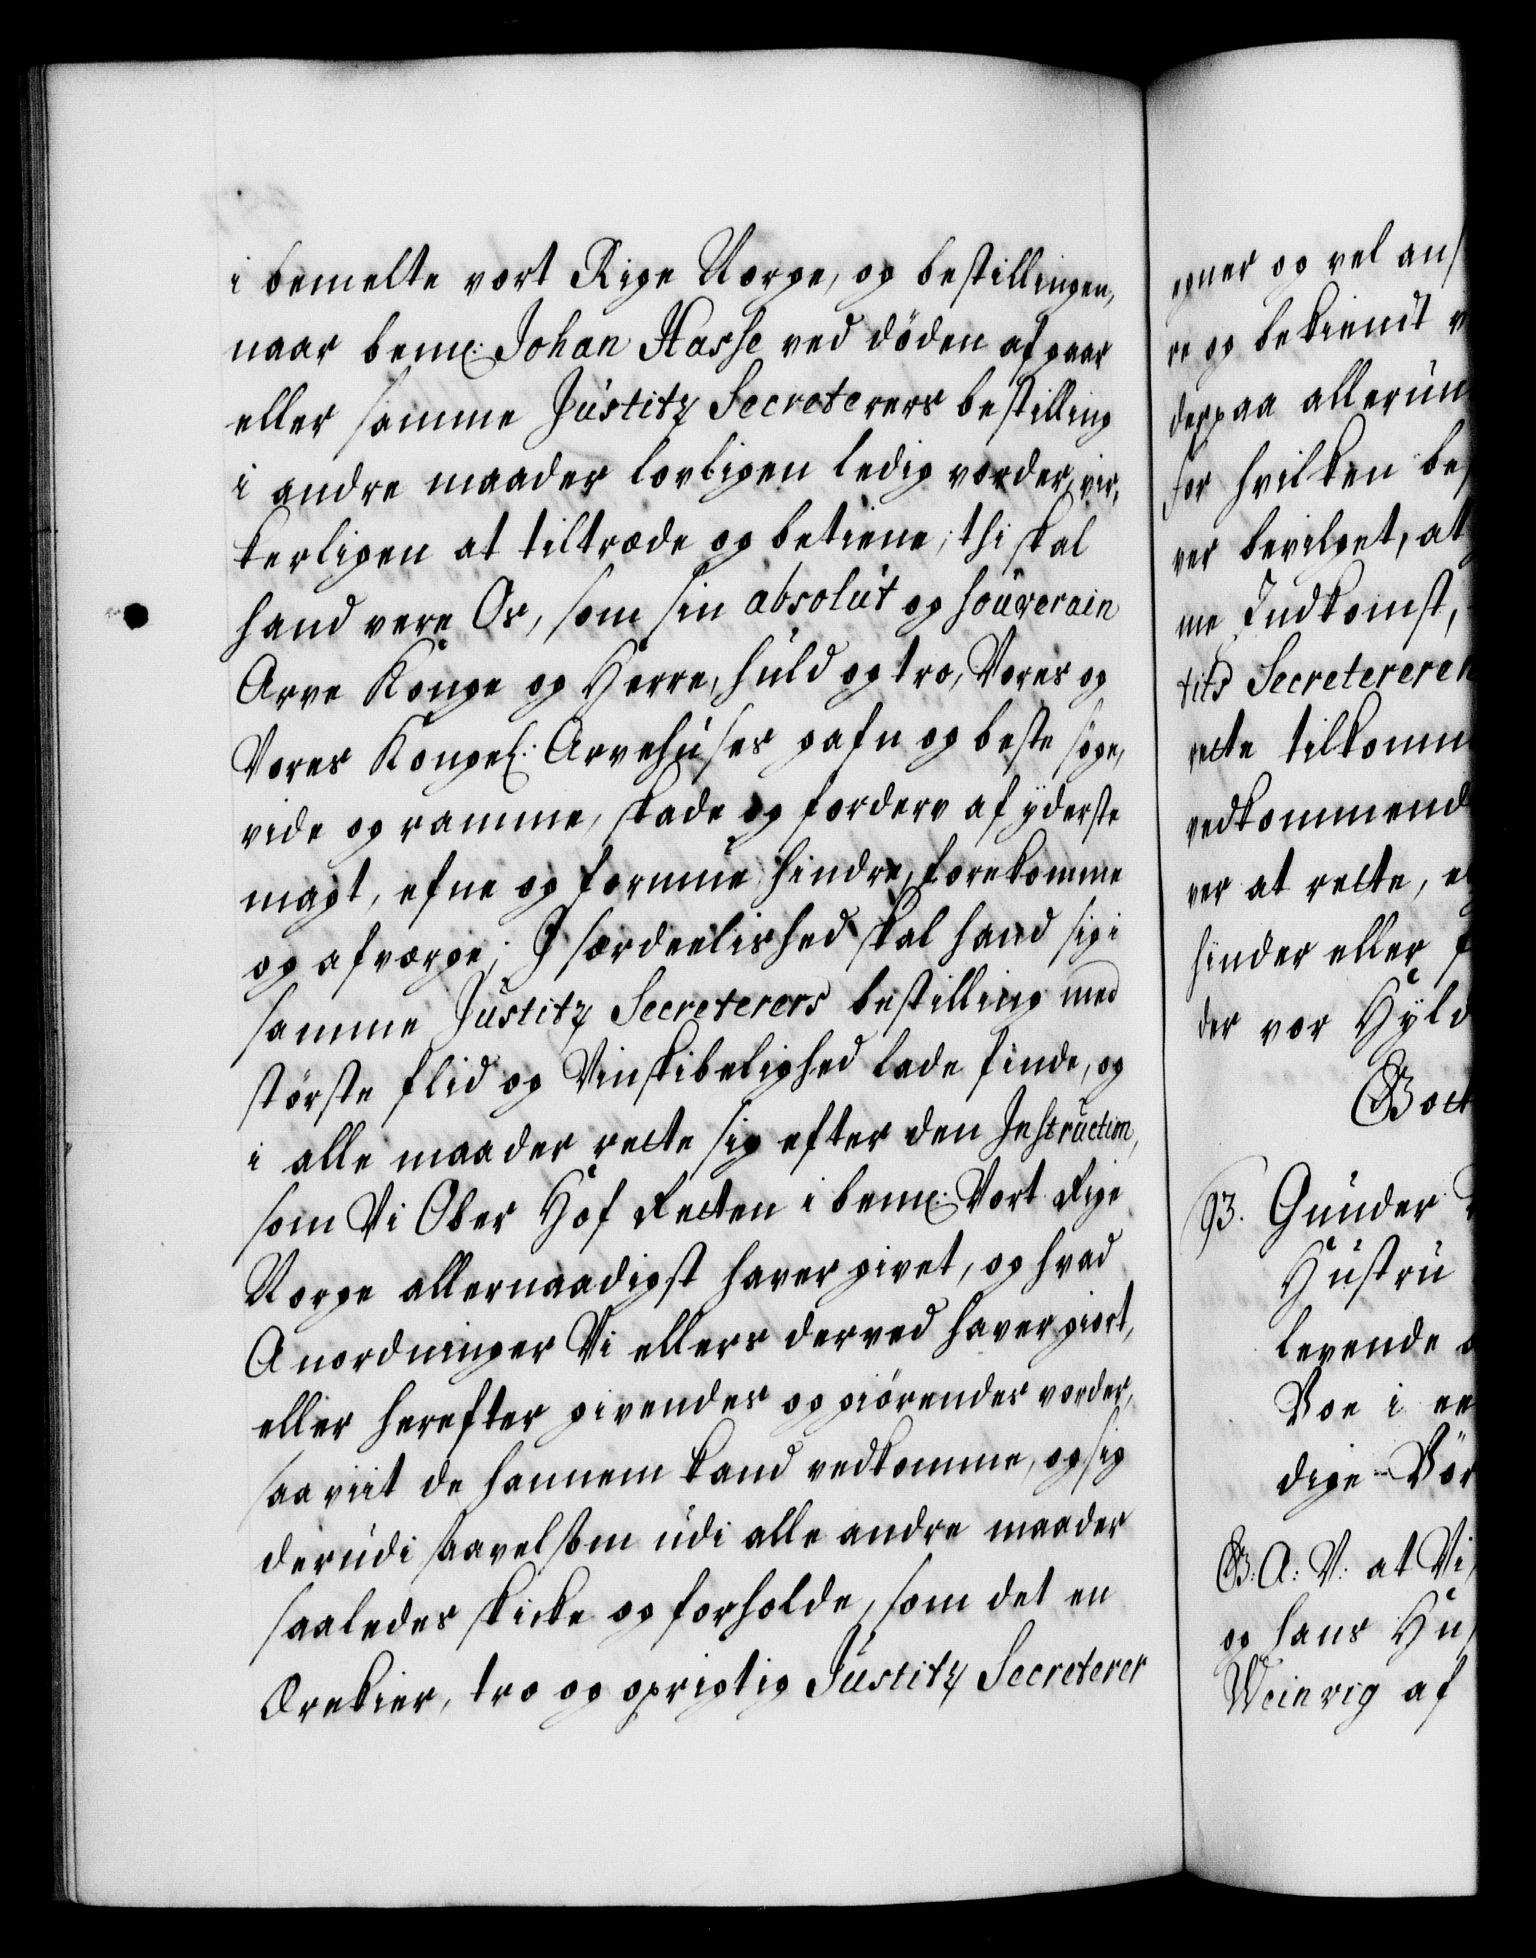 i bemelte vort Rige Norge, og bestillingen,
naar bem: Johan Hasse ved döden afgaar
eller samme Justitz Secreterers bestilling
i andre maader lovligen ledig vorder, vir,
kerligen at tiltræde og betiene; thi skal
hand være Os, som sin absolut og souverain
Arve Konge og Herre, huld og tro, Vores og
Vores Kongel: Arvehuses gafn og beste söge,
vide og ramme, skade og forderv af yderste
magt, efne og formue hindre, forekomme
og afværge; I særdeelished skal hand sig i
samme Justitz Secreterers bestilling med
störste flid og Vinskibelighed lade finde, og
i alle maader rette sig efter den Instruction,
som Vi Ober Hof Retten i bem: Vort Rige
Norge allernaadigst haver givet, og hvad
Anordninger Vi ellers derved haver giort,
eller herefter givendes og giörendes vorder,
saa viit de hannem kand vedkomme, og sig
derudi saavelsom udi alle andre maader
saaledes skicke og forholde, som det en
Ærekier, tro og oprigtig Justitz Secreterer
egner og vel ans
re og bekiendt v
derpaa allerun
for hvilken bes
ver bevilget, at
me Indkomst,
tits Secreterere
rette tilkomm
vedkommend
ver at rette, e
hinder eller f
der vor Hyld
93. Gunder
Hustru
levende
Boe i ee
dige Bör
G: A: V: at Vi,
og hans Hus
Weinrig af